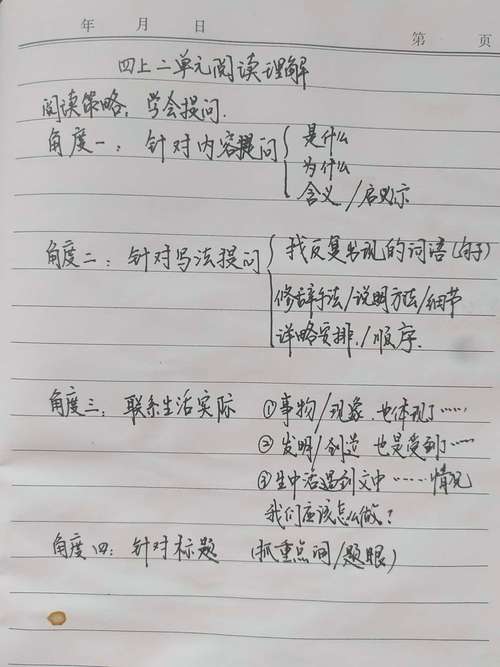 年 月 日 第 页
四上二单元阅读理解
阅读策略：学会提问.
角度一：针对内容提问
是什么
为什么
含义/启示
角度二：针对写法提问
找反复出现的词语(句子)
修辞手法/说明方法/细节
详略安排./顺序.
角度三：联系生活实际 ①事物/现象 也体现了……
②发明/创造 也是受到……
③生中活遇到文中……情况
我们应该怎么做？
角度四：针对标题 (抓重点词/题眼)